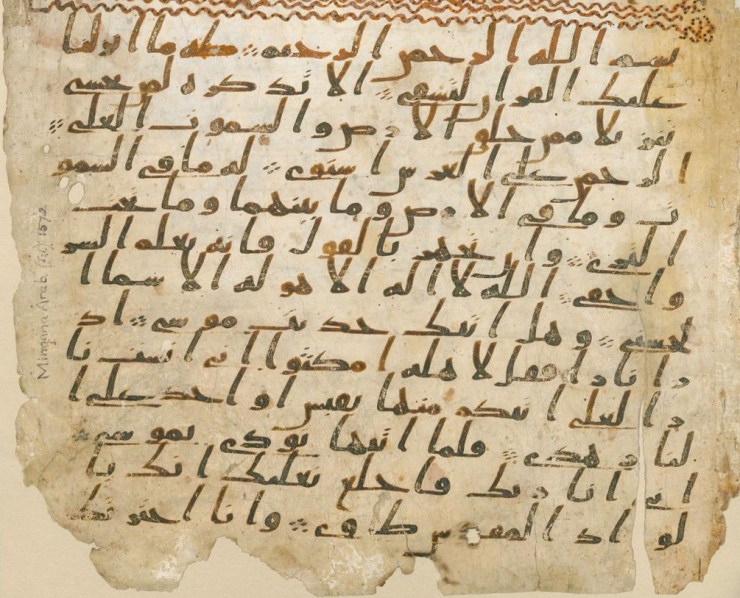 بسم الله الرحمن الرحيم طه ما انزلنا
عليك القرن لتشقى الا تذكره لمن يخشى
تنزيلا ممن خلق الارض والسموت العلى
الرحمن على العرش استوى له ما في السمو
ت وما في الارض وما بينهما وما تحت
الثرى وان تجهر بالقول فانه يعلم السر
واخفى الله لا اله الا هو له الاسما ا
لحسنى وهل اتيك حديث موسى اذ
را نارا فقل لاهله امكثوا اني انست نا
را لعلي اتيكم منها بقبس او اجد على ا
لنار هدى فلما اتيها نودي يموسى
اني انا ربك فاخلع نعليك انك با
لواد المقدس طوى وانا اخترتك
Mingana Arab. (Isl.) 1572